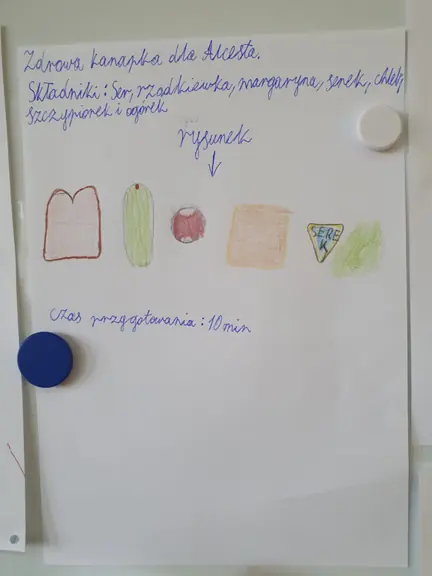 Zdrowa kanapka dla Alcesta.
Składniki: Ser, rzadkiewka, margaryna, serek, chleb,
szczypiorek i ogórek
rysunek
SERE
K
czas przygotowania: 10 min